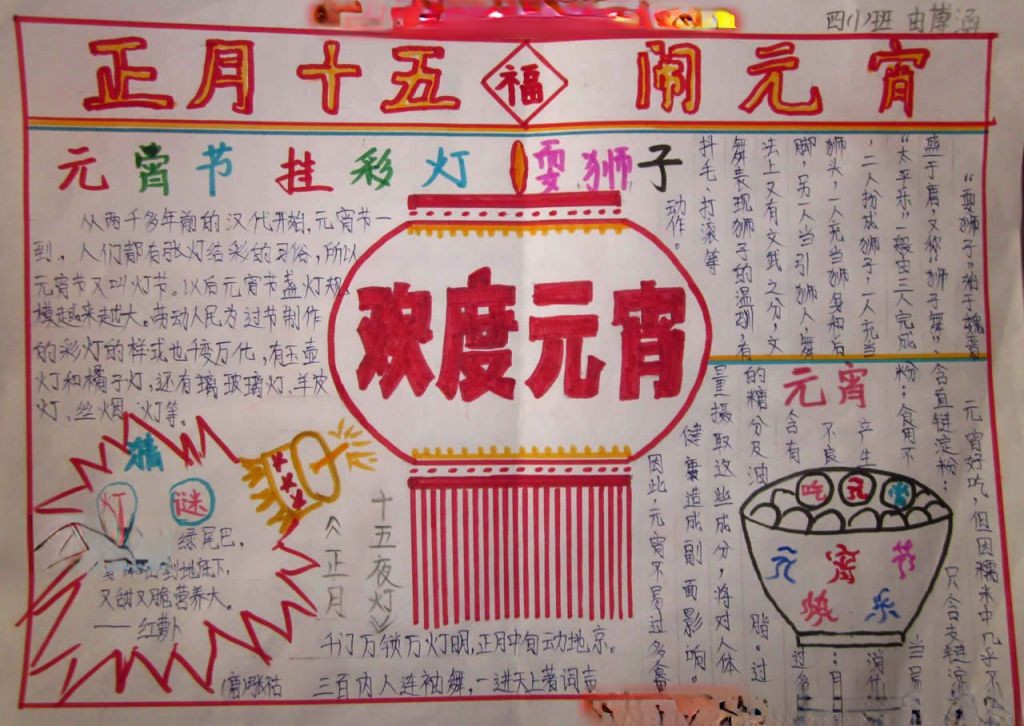 四(1)班 由博涵
正月十五 福 闹元宵
元宵节 挂彩灯
从两千多年前的汉代开始,元宵节一
到,人们都有张灯给彩的习俗,所以
元宵节又叫灯节。以后元宵节盏灯规
模越来越大。劳动人民为过节制作
的彩灯的样式也千变万化,有玉壶
灯和橘子灯,还有璃玻璃灯、羊皮
灯、丝烟 灯等。
耍狮子
“耍狮子,始于魏晋
盛于唐,又称“狮子舞”、
“太平乐”一般由三人完成
,二人扮成狮子,一人充当
狮头,一人充当狮身和后
脚,另一人当引狮人,舞
法上又有文武之分,文
舞表现狮子的温驯,有
抖毛、打滚等
动作。
欢度元宵
猜
灯 谜
绿尾巴,
到地底下,
又甜又脆营养大。
——红萝卜
《正月
十五夜灯》
千门万锁万灯明,正月中旬动地京。
(唐)张祜
三百内人连袖舞,一进天上著词声
元宵
元宵好吃,但因糯米中几乎不
含直链淀粉,只含支链淀
粉;食用不当易
产生
不良
含有
的糖分及油脂。过
量摄取这些成分,将对人体
健康造成副面影响。
因此元宵不易过多食
吃 元 宵
元宵节
快乐